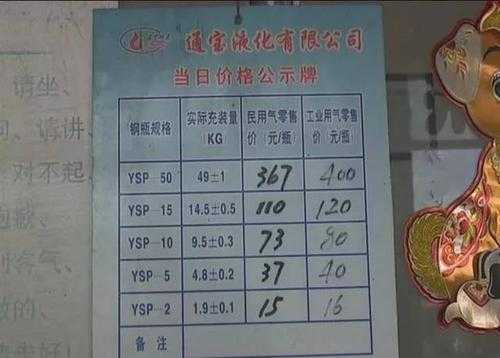 通宝液化有限公司
当日价格公示牌
钢瓶规格 实际充装量(KG) 民用气零售价(元/瓶) 工业用气零售价(元/瓶)
YSP-50 49±1 367 400
YSP-15 14.5±0.5 110 120
YSP-10 9.5±0.3 73 80
YSP-5 4.8±0.2 37 40
YSP-2 1.9±0.1 15 16
备注
请坐、
请讲、
对不起、
抱歉、
别客气、